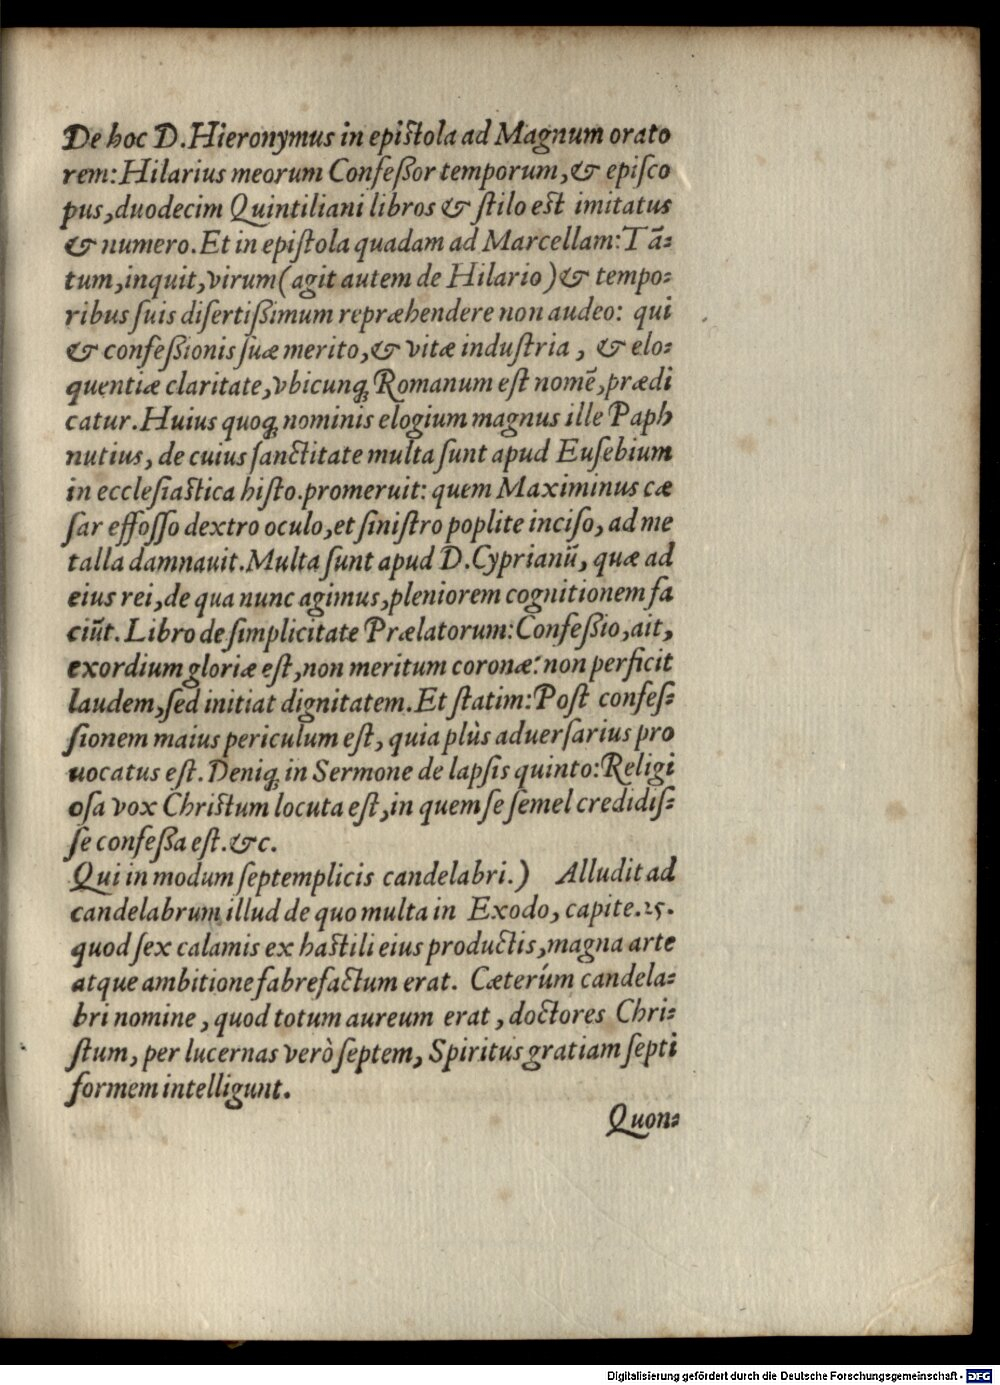 De hoc D.Hieronymus in epistola ad Magnum orato
rem:Hilarius meorum Confeßor temporum,& episco
pus,duodecim Quintiliani libros & stilo est imitatus
& numero.Et in epistola quadam ad Marcellam:Tā⸗
tum,inquit,virum(agit autem de Hilario)& tempo⸗
ribus suis disertißimum repræhendere non audeo: qui
& confeßionis suæ merito,& vitæ industria, & elo⸗
quentiæ claritate,vbicunq; Romanum est nomē,prædi
catur.Huius quoq; nominis elogium magnus ille Paph
nutius, de cuius sanctitate multa sunt apud Eusebium
in ecclesiastica histo.promeruit: quem Maximinus cæ
sar effosso dextro oculo,et sinistro poplite inciso, ad me
talla damnauit.Multa sunt apud D.Cyprianū, quæ ad
eius rei,de qua nunc agimus,pleniorem cognitionem fa
ciūt. Libro de simplicitate Prælatorum:Confeßio,ait,
exordium gloriæ est,non meritum coronæ: non perficit
laudem,sed initiat dignitatem.Et statim:Post confes⸗
sionem maius periculum est, quia plùs aduersarius pro
uocatus est. Deniq; in Sermone de lapsis quinto:Religi
osa vox Christum locuta est,in quem se semel credidis⸗
se confeßa est.&c.
Qui in modum septemplicis candelabri.) Alludit ad
candelabrum illud de quo multa in Exodo, capite.25.
quod sex calamis ex hastili eius productis,magna arte
atque ambitione fabrefactum erat. Cæterúm candela⸗
bri nomine, quod totum aureum erat, doctores Chri⸗
stum, per lucernas verò septem, Spiritus gratiam septi
formem intelligunt.
Quon⸗
Digitalisierung gefördert durch die Deutsche Forschungsgemeinschaft - DFG